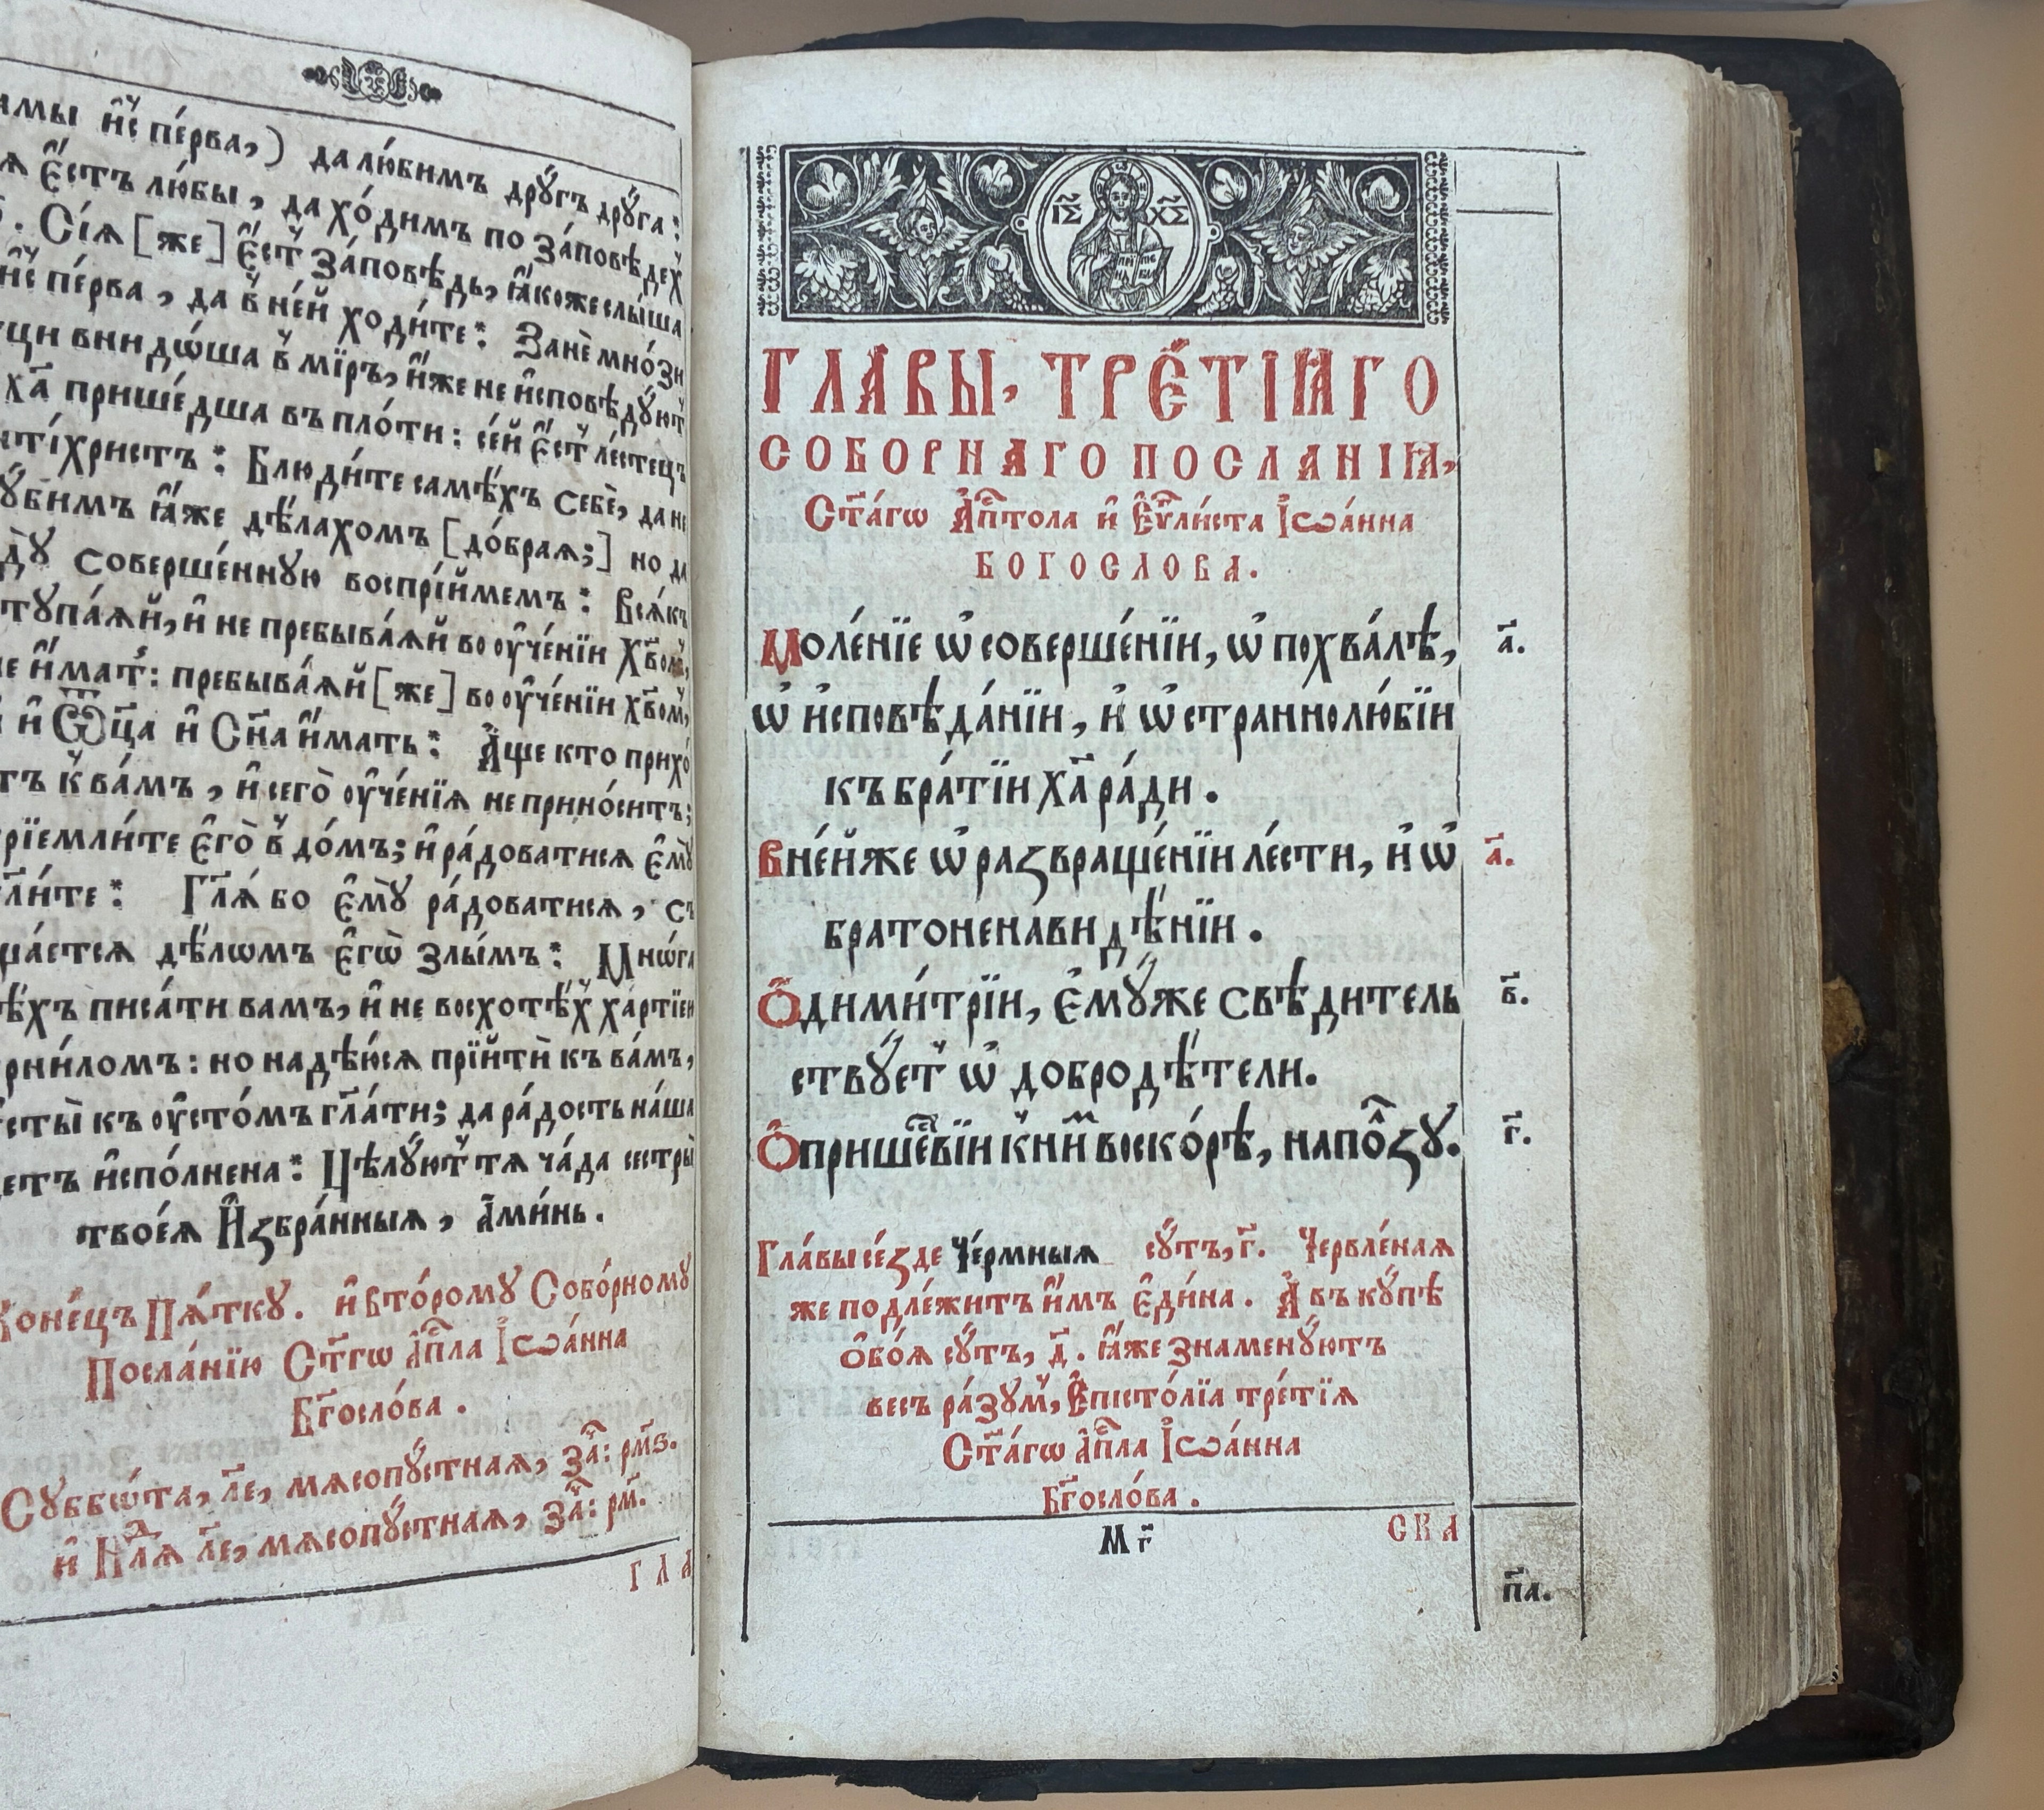 імы и҆с̾ пе́рва,) да лю́бимъ дрꙋ́гъ дрꙋ́га:
ѧ є҆́сть лю́бы, да хо́димъ по за́повѣдех̾
Сі́ѧ [же] є҆́ст̾ за́повѣдь, ꙗ҆́коже слы́ша
ис̾ пе́рва, да в̾ не́й ходи́те: Занѐ мно́зи
ци внидѡ́ша в̾ мі́ръ, и҆́же не и҆сповѣ́дꙋют̾
ха҃ прише́дша въ пло́ти: се́й є҆́ст̾ ле́стецъ
нті́христъ: Блюди́те самѣ́хъ себѐ, да не
ꙋ́бимъ ꙗ҆́же дѣ́лахомъ [до́браѧ;] но да
дꙋ̀ соверше́ннꙋю воспрі́ймемъ: Всѧ́къ
тꙋпа́ѧй, и҆ не пребыва́ѧй во ᲂу҆че́нїи Хв҃омъ,
не и҆́мат̾: пребыва́ѧй [же] во ᲂу҆че́нїи хв҃ом̾,
и҆ Ѿц҃а и҆ Сн҃а и҆́мать: А҆́ще кто прихо́
тъ к̾ ва́мъ, и҆ сегѡ̀ ᲂу҆че́нїѧ не прино́ситъ;
рїемли́те є҆го̀ в̾ до́мъ; и҆ ра́доватисѧ є҆мꙋ̀
гл҃и́те: Гл҃ѧ́ бо є҆мꙋ̀ ра́доватисѧ, съ
ща́етсѧ дѣ́лѡмъ є҆гѡ̀ злы́мъ: Мнѡ́га
ѣ́хъ писа́ти вамъ, и҆ не восхотѣ́х̾ ха́ртїею
рни́ломъ: но надѣ́юсѧ прїйтѝ къ ва́мъ,
ꙋсты̀ къ ᲂу҆сто́мъ гл҃а́ти; да ра́дость на́ша
детъ и҆спо́лнена: Цѣлꙋ́ют̾ тѧ ча́да сестры̀
твоеѧ́ И҆збра́нныѧ, а҆ми́нь.
Коне́цъ Пѧ́ткꙋ. и҆ вто́ромꙋ Собо́рномꙋ
Посла́нїю Ст҃гѡ а҆пⷭ҇ла І҆ѡа́нна
Бг҃осло́ва.
Сꙋббѡ́та, л҃е, мѧсопꙋ́стнаѧ, заⷱ҇: рм҃ѕ.
и҆ Нлⷣѧ л҃е, мѧсопꙋ́стнаѧ, заⷱ҇: рм҃.
ГЛА
ІС҃ ХС҃
ГЛАВЫ, ТРЕ́ТІꙖГО
СОБОРНАГО ПОСЛАНІꙖ,
Ст҃а́гѡ А҆пⷭ҇тола и҆ Є҆ѵⷢ҇ли́ста І҆ѡа́нна
БОГОСЛОВА.
Моле́нїе ѡ҆ соверше́нїи, ѡ҆ похва́лѣ, а҃.
ѡ҆ и҆сповѣда́нїи, и҆ ѡ҆ страннолю́бїи
къ бра́тїи Хⷭ҇а ра́ди.
В не́йже ѡ҆ развраще́нїи ле́сти, и҆ ѡ҆ а҃.
братоненави дѣ́нїи.
Ѻ҆ дими́трїи, є҆мꙋ́же свѣдитель б҃.
ствꙋ́ет̾ ѡ҆ добродѣ́тели.
Ѻ҆ прише́ствїи к̾ ни́м̾ воско́рѣ, напо́лзꙋ. г҃.
Гла́вы се́ зде Че́рмныѧ сꙋ́тъ, г҃. Червле́наѧ
же подле́житъ и҆́мъ є҆ди́на. А҆ въ кꙋ́пѣ
ѻ҆бо́ѧ сꙋ́тъ, д҃. ꙗ҆́же знаменꙋ́ютъ
весь ра́зꙋм̾, Є҆писто́лїа тре́тїѧ
Ст҃а́гѡ а҆пⷭ҇ла І҆ѡа́нна
Бг҃осло́ва.
М г҃ СКА
п҃а.